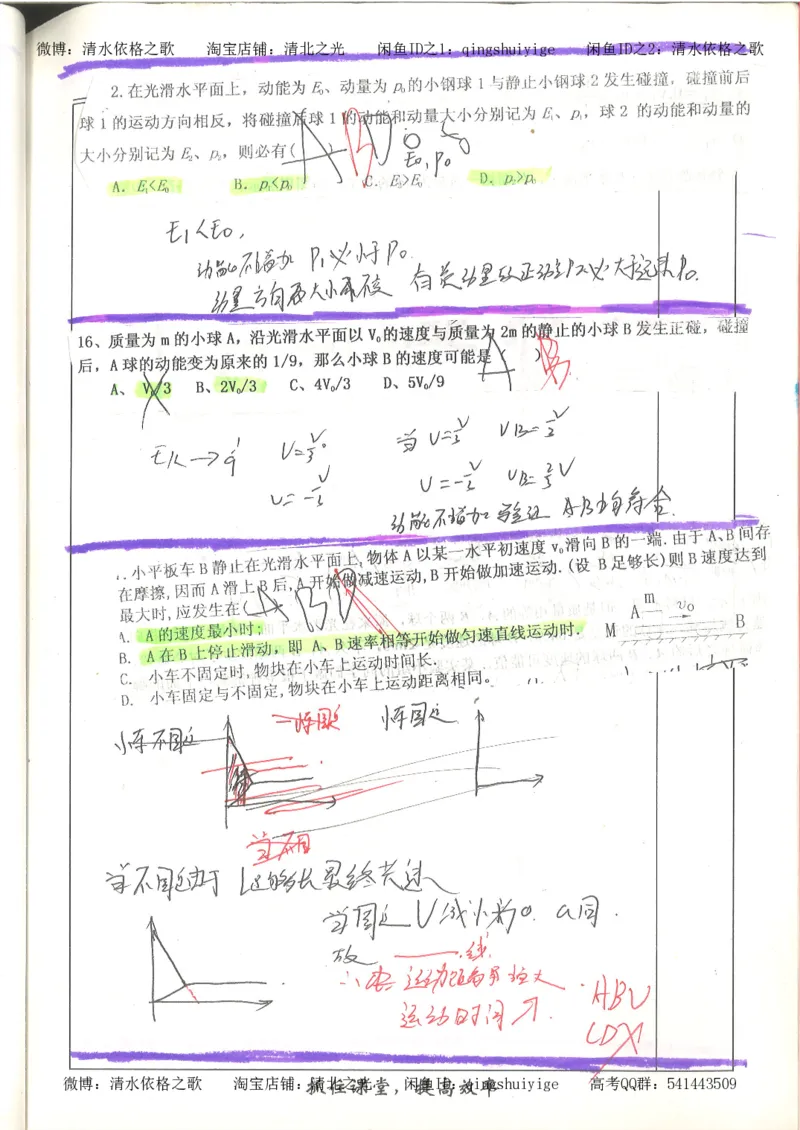 微博：清水依格之歌 淘宝店铺：清北之光 闲鱼ID之1：qingshuiyige 闲鱼ID之2：清水依格之歌
2.在光滑水平面上，动能为 E₀、动量为 p₀的小钢球 1 与静止小钢球 2 发生碰撞，碰撞前后
球 1 的运动方向相反，将碰撞后球 1 的动能和动量大小分别记为 E₁、p₁，球 2 的动能和动量的
大小分别记为 E₂、p₂，则必有( )
ABD
E₀,p₀
A. E₁<E₀ B. p₁<p₀ C. E₂>E₀ D. p₂>p₀
E₁<E₀,
动能不增加 P₁必小于P₀.
16、质量为 m 的小球 A，沿光滑水平面以 V₀的速度与质量为 2m 的静止的小球 B 发生正碰，碰撞
后，A 球的动能变为原来的 1/9，那么小球 B 的速度可能是（ ）
A B
A、 V₀/3 B、2V₀/3 C、4V₀/3 D、5V₀/9
动能不增加 验证 AB均符合.
..小平板车 B 静止在光滑水平面上,物体 A 以某一水平初速度 v₀滑向 B 的一端.由于 A、B 间存
在摩擦,因而 A 滑上 B 后,A 开始做减速运动,B 开始做加速运动.(设 B 足够长)则 B 速度达到
最大时,应发生在( )
A. A 的速度最小时;
B. A 在 B 上停止滑动，即 A、B 速率相等开始做匀速直线运动时.
C. 小车不固定时,物块在小车上运动时间长.
D. 小车固定与不固定,物块在小车上运动距离相同。
m
A v₀
M B
小车不固定 小车固定
当不固定由于 L足够长最终共速
当固定 V减小为0. a同.
故
运动时间
ABV
CDX
抓住课堂，提高效率
微博：清水依格之歌 淘宝店铺：清北之光 闲鱼ID：qingshuiyige 高考QQ群：541443509